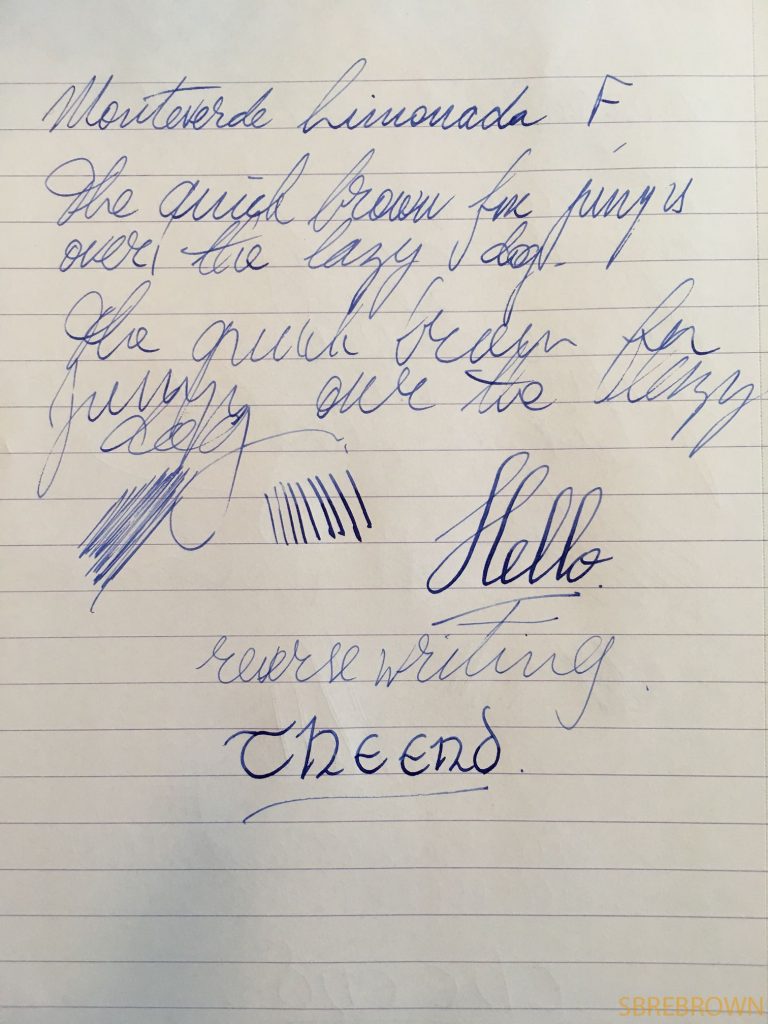 Monteverde Limonada F
The quick brown fox jumps
over the lazy dog.
The quick brown fox
jumps over the lazy
dog
Hello.
reverse writing.
The end.
SBREBROWN